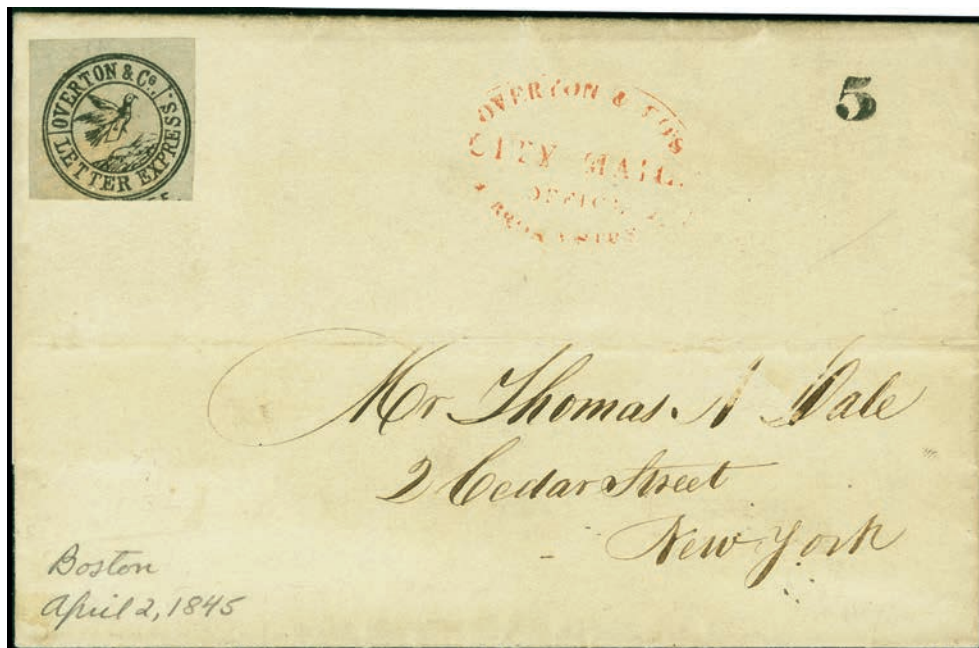 OVERTON & Co.
LETTER EXPRESS
OVERTON & CO'S
CITY MAIL
OFFICE
5
Mr Thomas A Dale
2 Cedar Street
New York
Boston
April 2, 1845